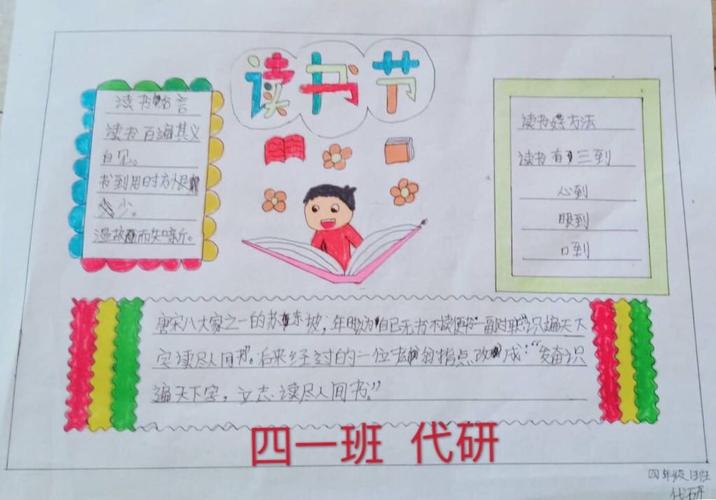 读书节
读书名言
读书百遍其义
自见。
书到用时方恨
少。
温故而知新。
读书好方法
读书有三到
心到
眼到
口到
唐宋八大家之一的苏东坡,年
自己无书不读便 一副对联"识遍天下
字读尽人间书"。后来经过的一位 指点改成:"发奋识
遍天下字,立志读尽人间书。"
四一班 代研
四年级1班
代研